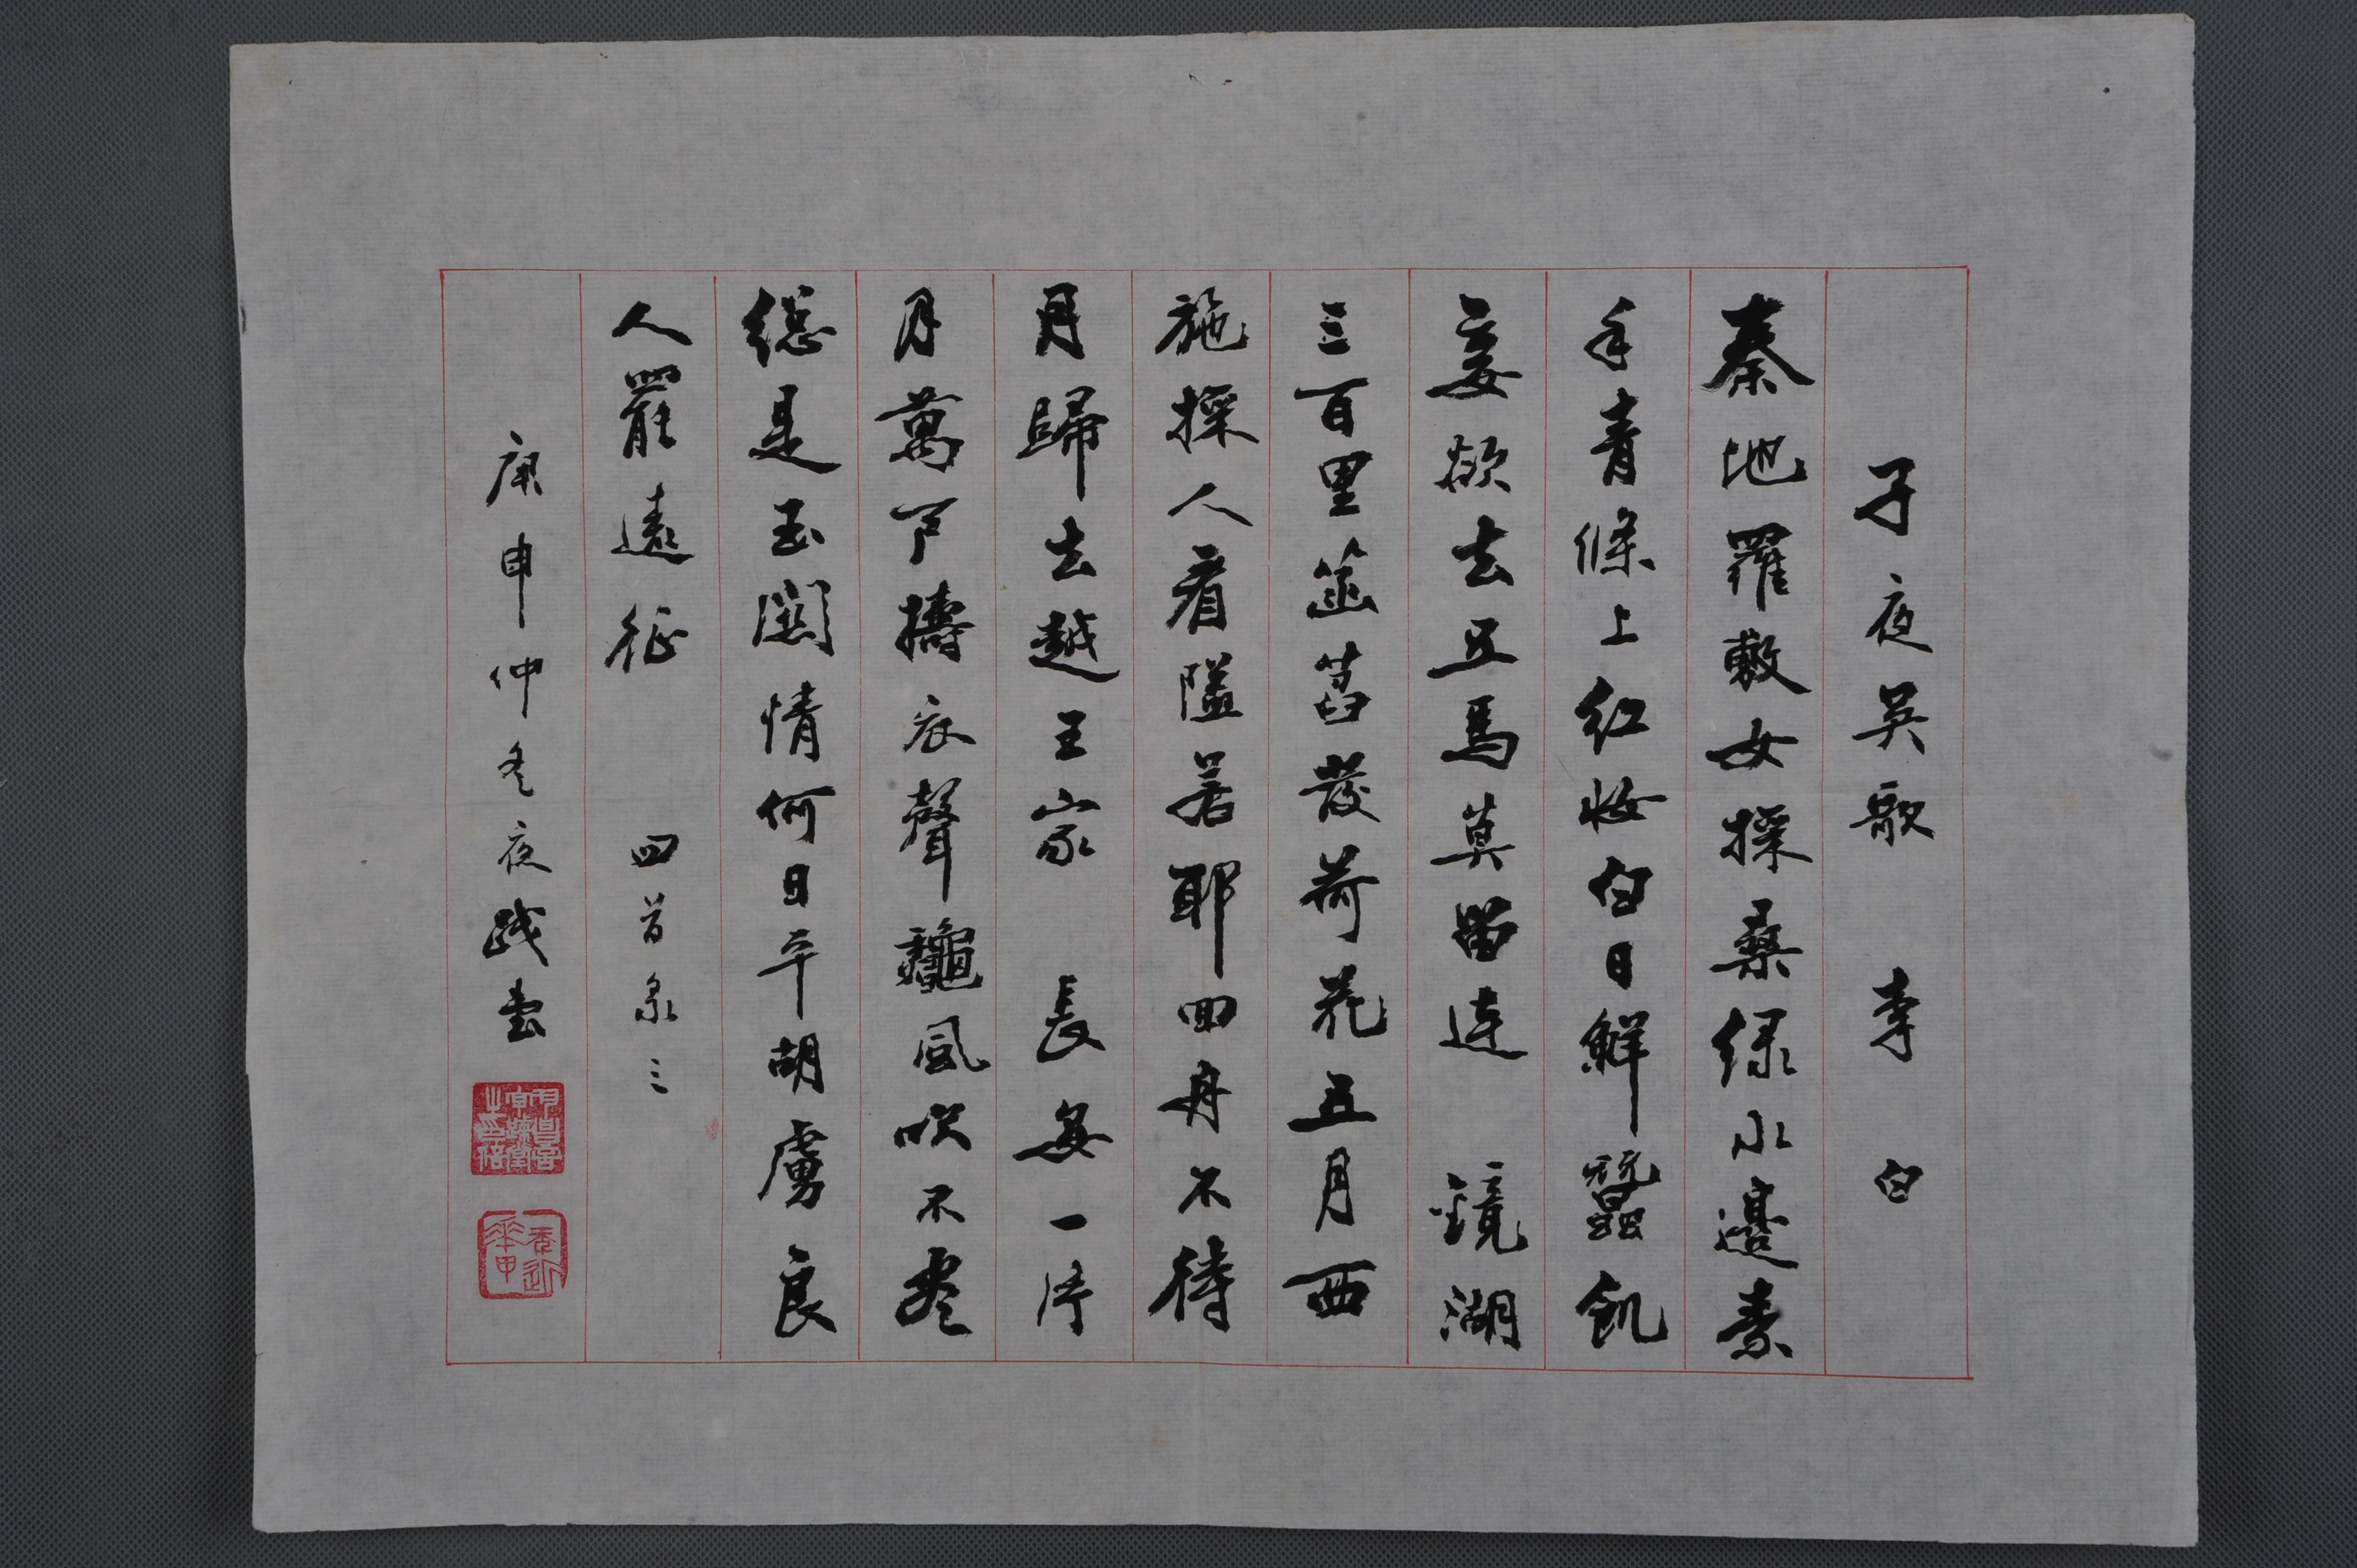 子夜吳歌 李白
秦地羅敷女採桑綠水邊素
手青條上紅妝白日鮮蠶飢
妾欲去五馬莫留連 鏡湖
三百里菡萏發荷花五月西
施採人看隘若耶回舟不待
月歸去越王家 長安一片
月萬戶擣衣聲龝風吹不盡
總是玉關情何日平胡虜良
人罷遠征 四首錄三
庚申仲冬夜踐書